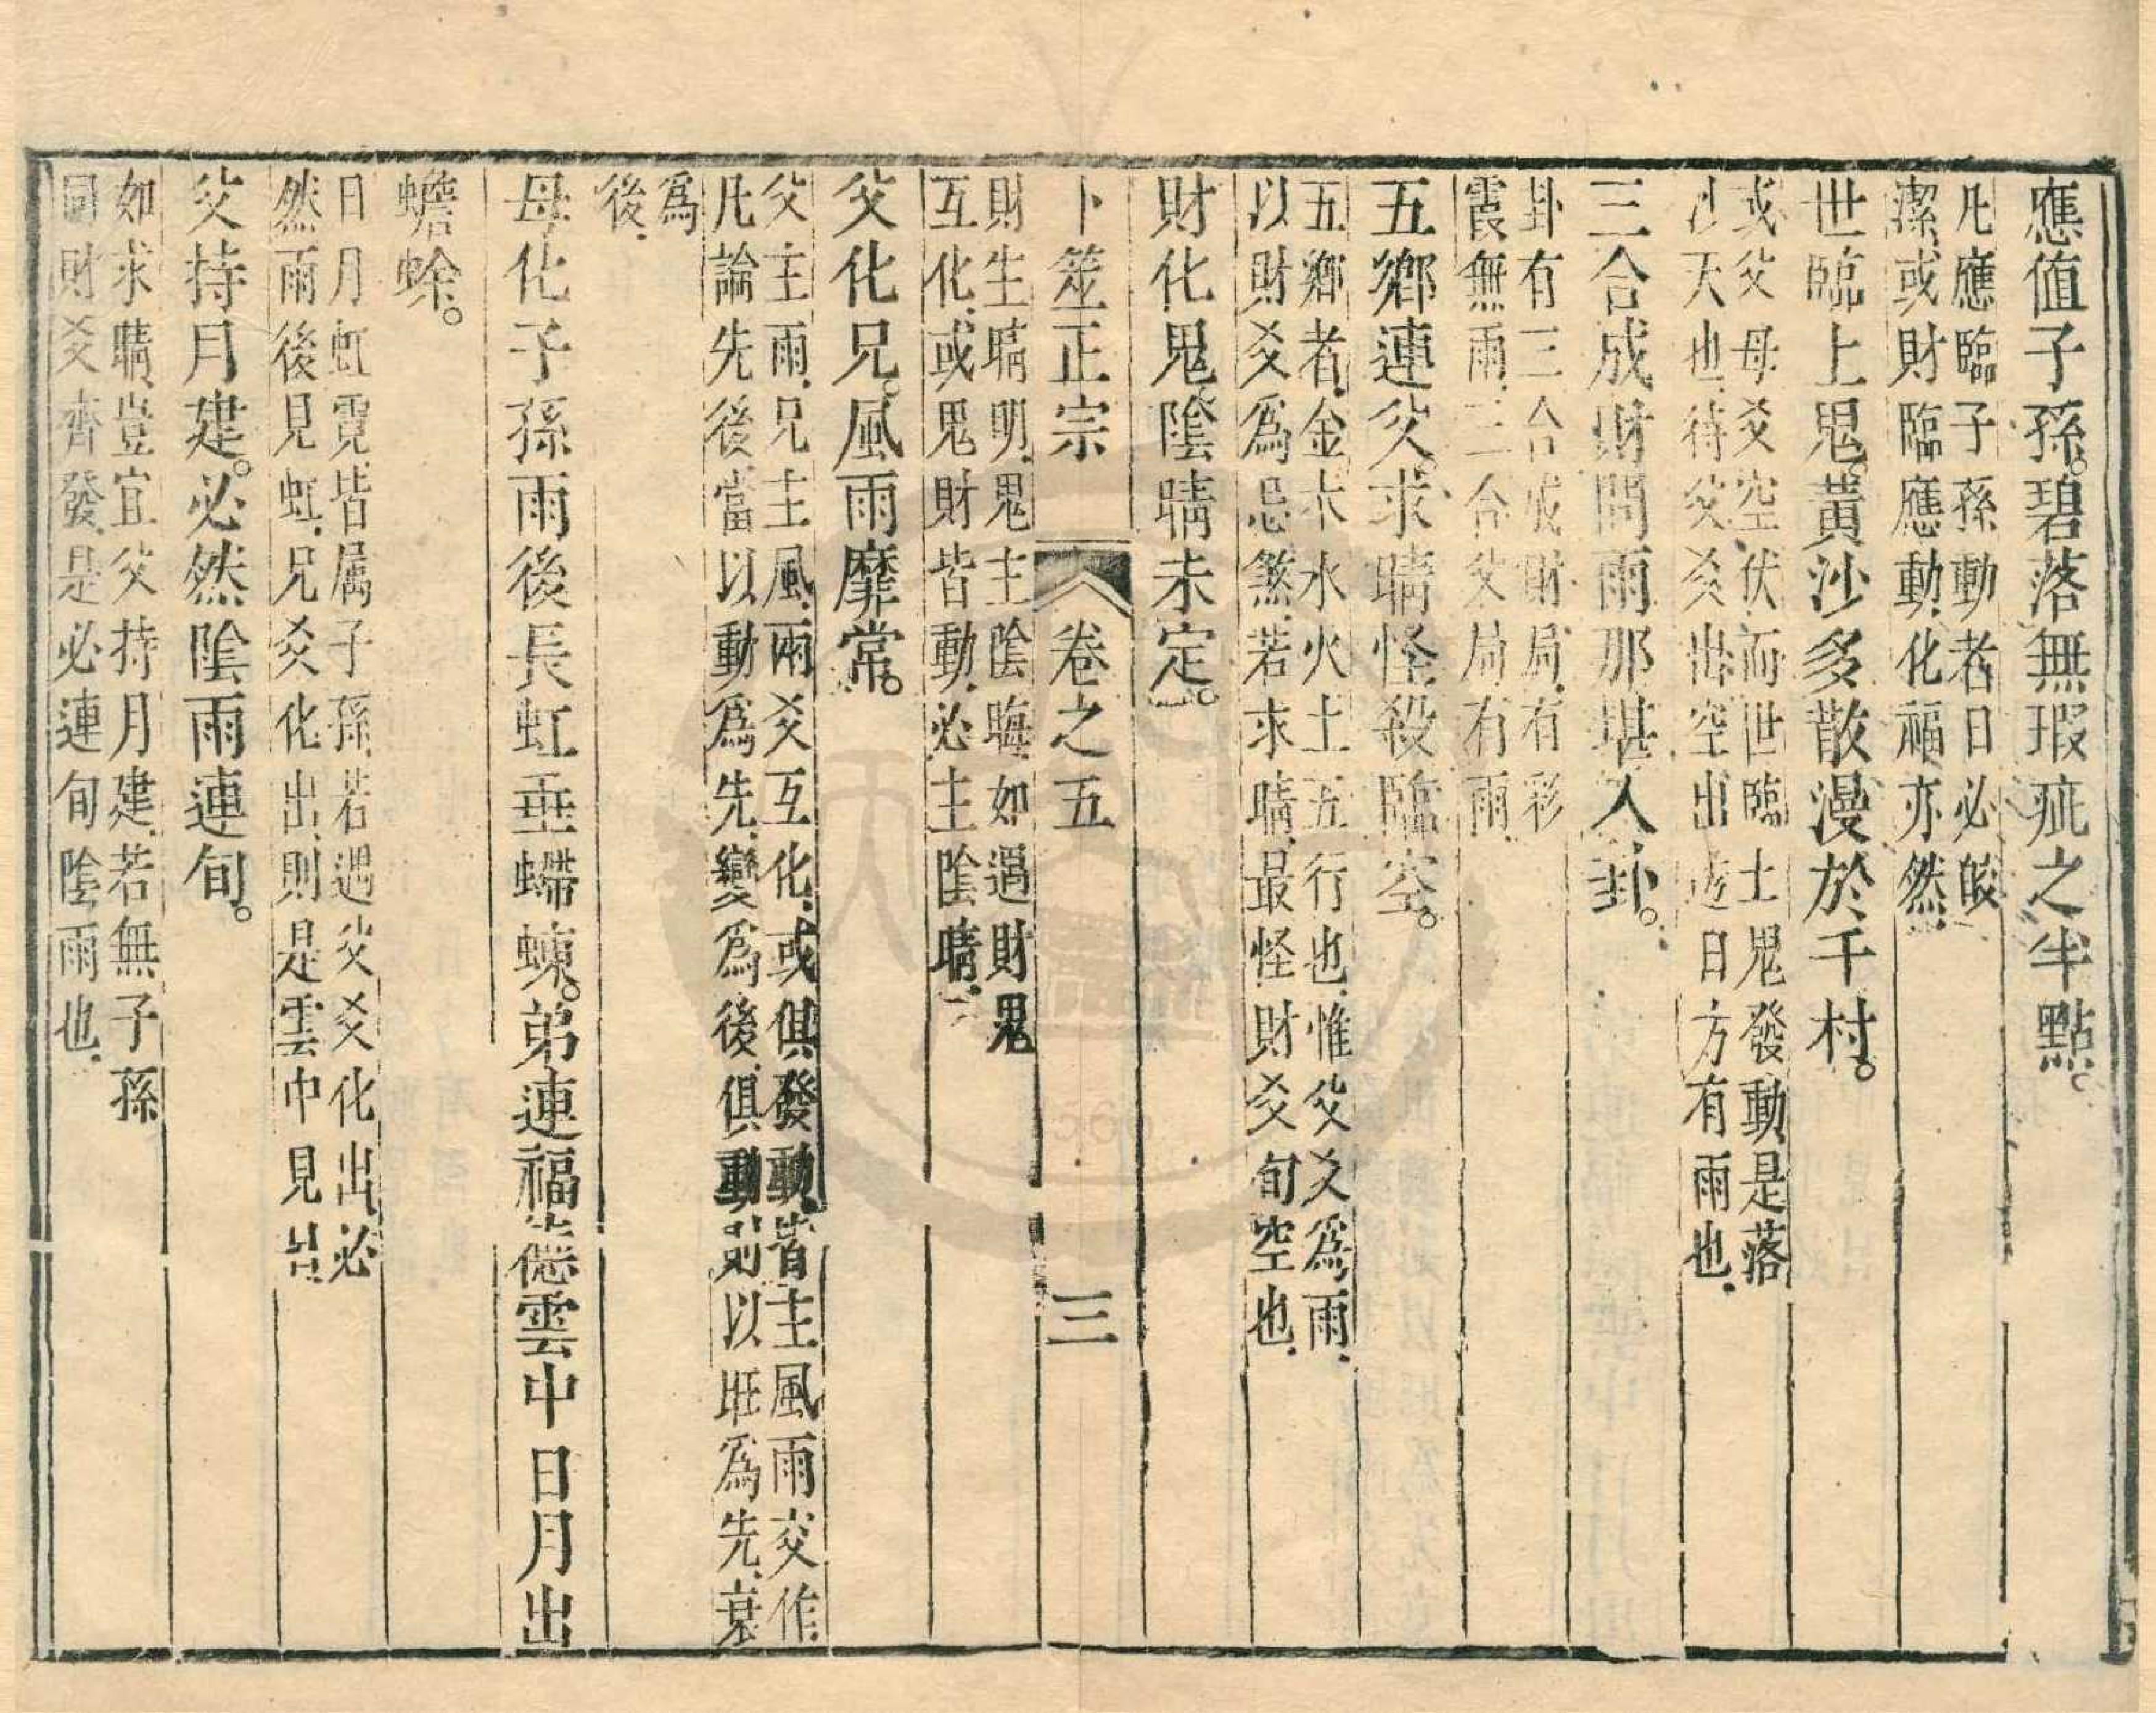 應值子孫。碧落無瑕疵之半點。
凡應臨子孫動者日必皎
潔或財臨應動化福亦然
世臨土鬼。黃沙多散漫於千村。
或父母爻空伏而世臨土鬼發動是落
沙天也待父爻出空出透日方有雨也
三合成財問雨那堪入卦。
卦有三合成財局有彩
霞無雨三合父局有雨
五鄉連父。求晴怪殺臨空。
五鄉者金木水火土五行也惟父爻爲雨
以財爻爲忌煞若求晴最怪財爻旬空也
財化鬼陰晴未定。
卜筮正宗 卷之五 三
財生晴明鬼主陰晦如遇財鬼
互化或鬼財皆動必主陰晴
父化兄。風雨靡常。
父主雨兄主風兩爻互化或俱發動皆主風雨交作
凡論先後當以動爲先變爲後俱動則以旺爲先衰
爲
後
母化子孫雨後長虹垂螮蝀。弟連福德雲中日月出
蟾蜍。
日月虹霓皆属子孫若遇父爻化出必
然雨後見虹兄爻化出則是雲中見出
父持月建。必然陰雨連旬。
如求晴豈宜父持月建若無子孫
同財爻齊發是必連旬陰雨也